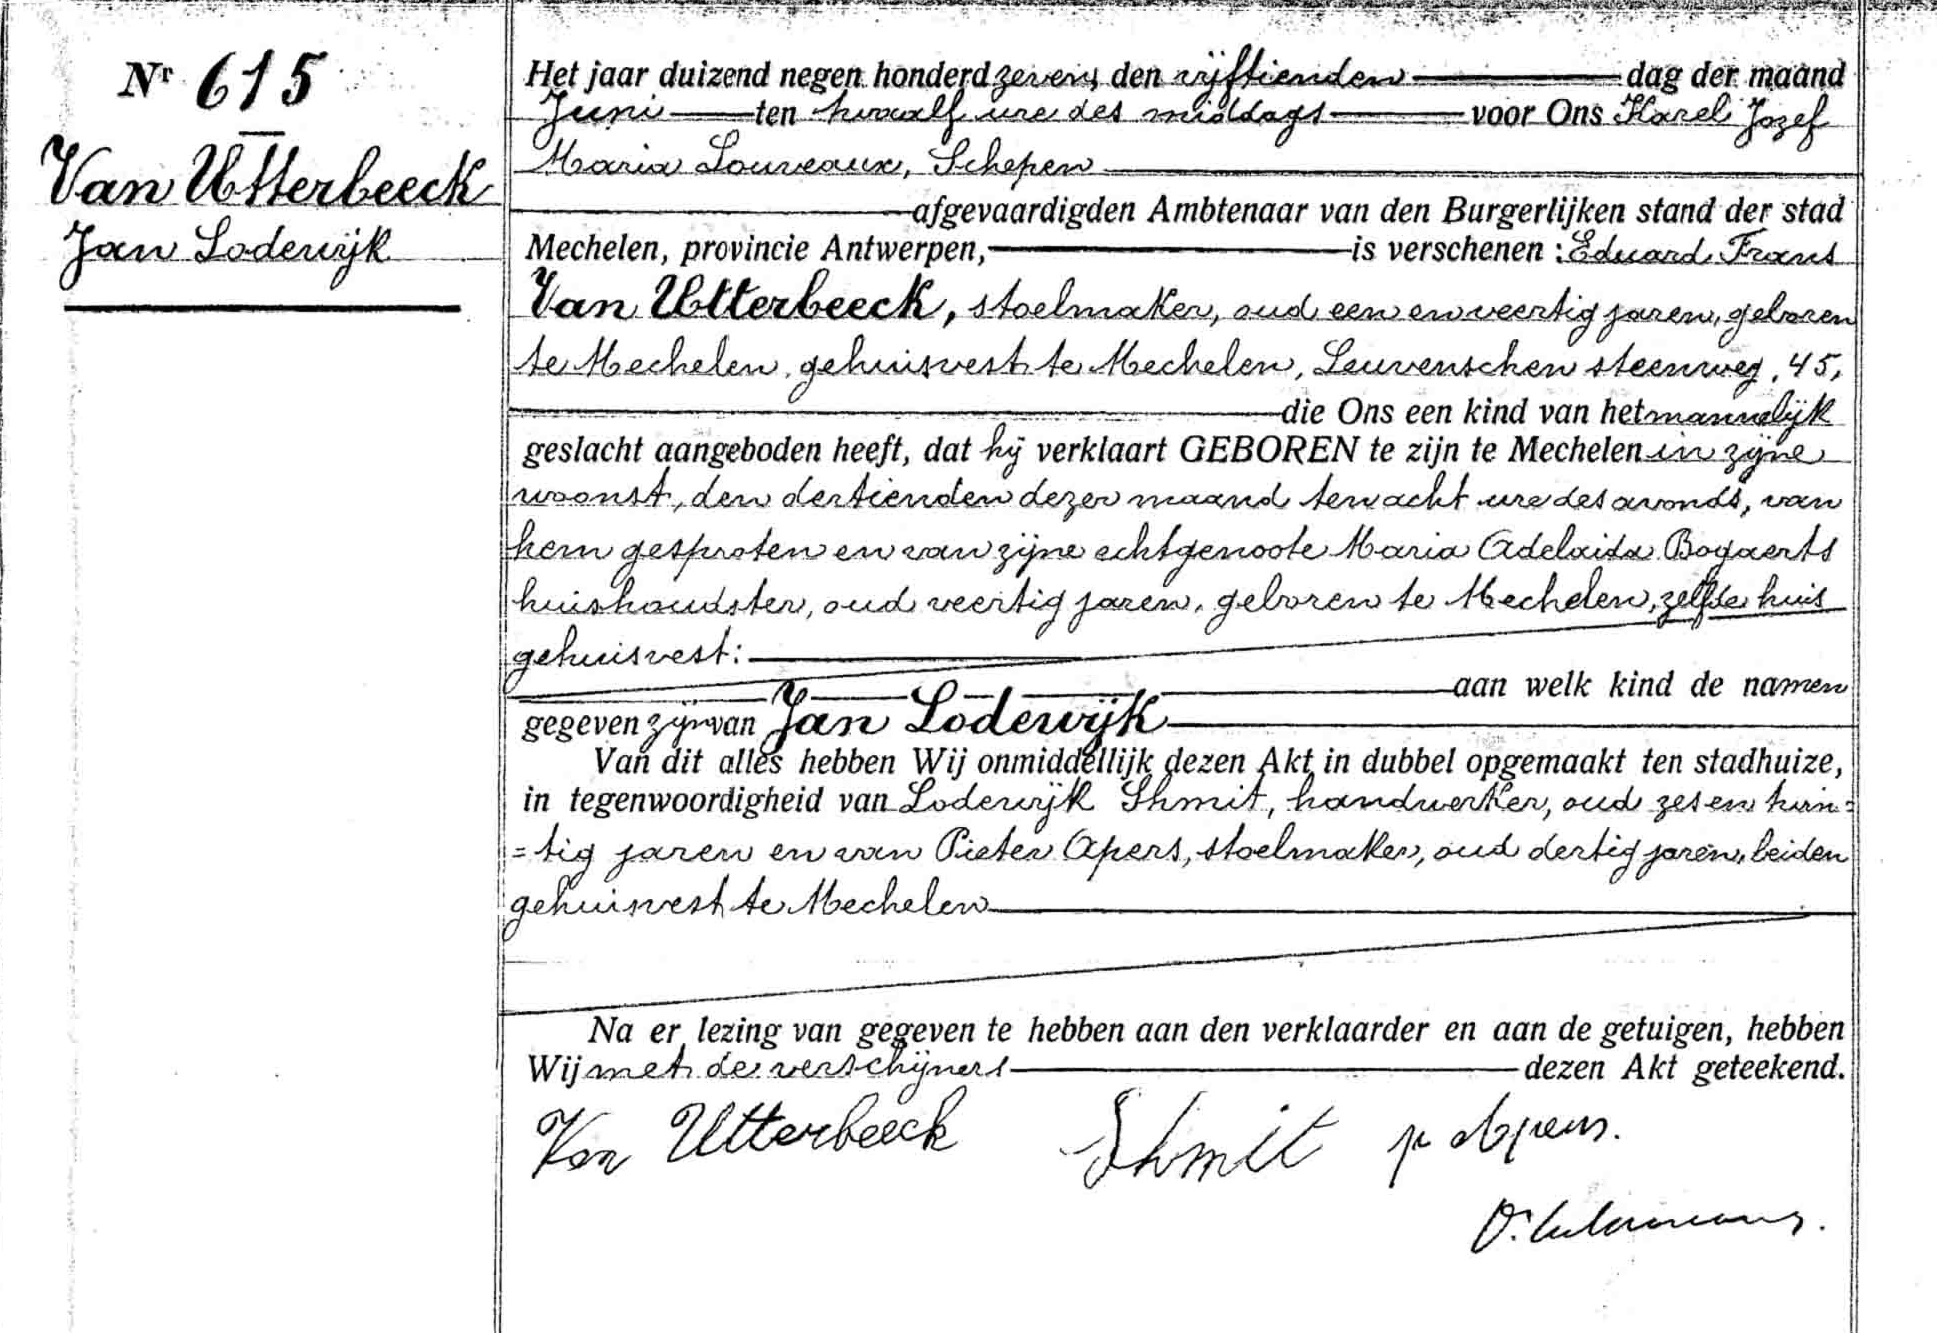 Nr 615
Van Utterbeeck
Jan Lodewijk
Het jaar duizend negen honderd zeven, den vijftienden dag der maand
Juni ten twaalf ure des middags voor Ons Karel Jozef
Maria Louveaux, Schepen
afgevaardigden Ambtenaar van den Burgerlijken stand der stad
Mechelen, provincie Antwerpen, is verschenen : Eduard Frans
Van Utterbeeck, stoelmaker, oud een en veertig jaren, geboren
te Mechelen, gehuisvest te Mechelen, Leuvenschen steenweg, 45,
die Ons een kind van het mannelijk
geslacht aangeboden heeft, dat hij verklaart GEBOREN te zijn te Mechelen in zijne
woonst, den dertienden dezer maand ten acht ure des avonds, van
hem gesproten en van zijne echtgenoote Maria Adelaida Bogaerts
huishoudster, oud veertig jaren, geboren te Mechelen, zelfde huis
gehuisvest:
aan welk kind de namen
gegeven zijn van Jan Lodewijk
Van dit alles hebben Wij onmiddellijk dezen Akt in dubbel opgemaakt ten stadhuize,
in tegenwoordigheid van Lodewijk Shmit, handwerker, oud zes en twin=
=tig jaren en van Pieter Apers, stoelmaker, oud dertig jaren, beiden
gehuisvest te Mechelen
Na er lezing van gegeven te hebben aan den verklaarder en aan de getuigen, hebben
Wij met de verschijners dezen Akt geteekend.
Van Utterbeeck Shmit p Apers.